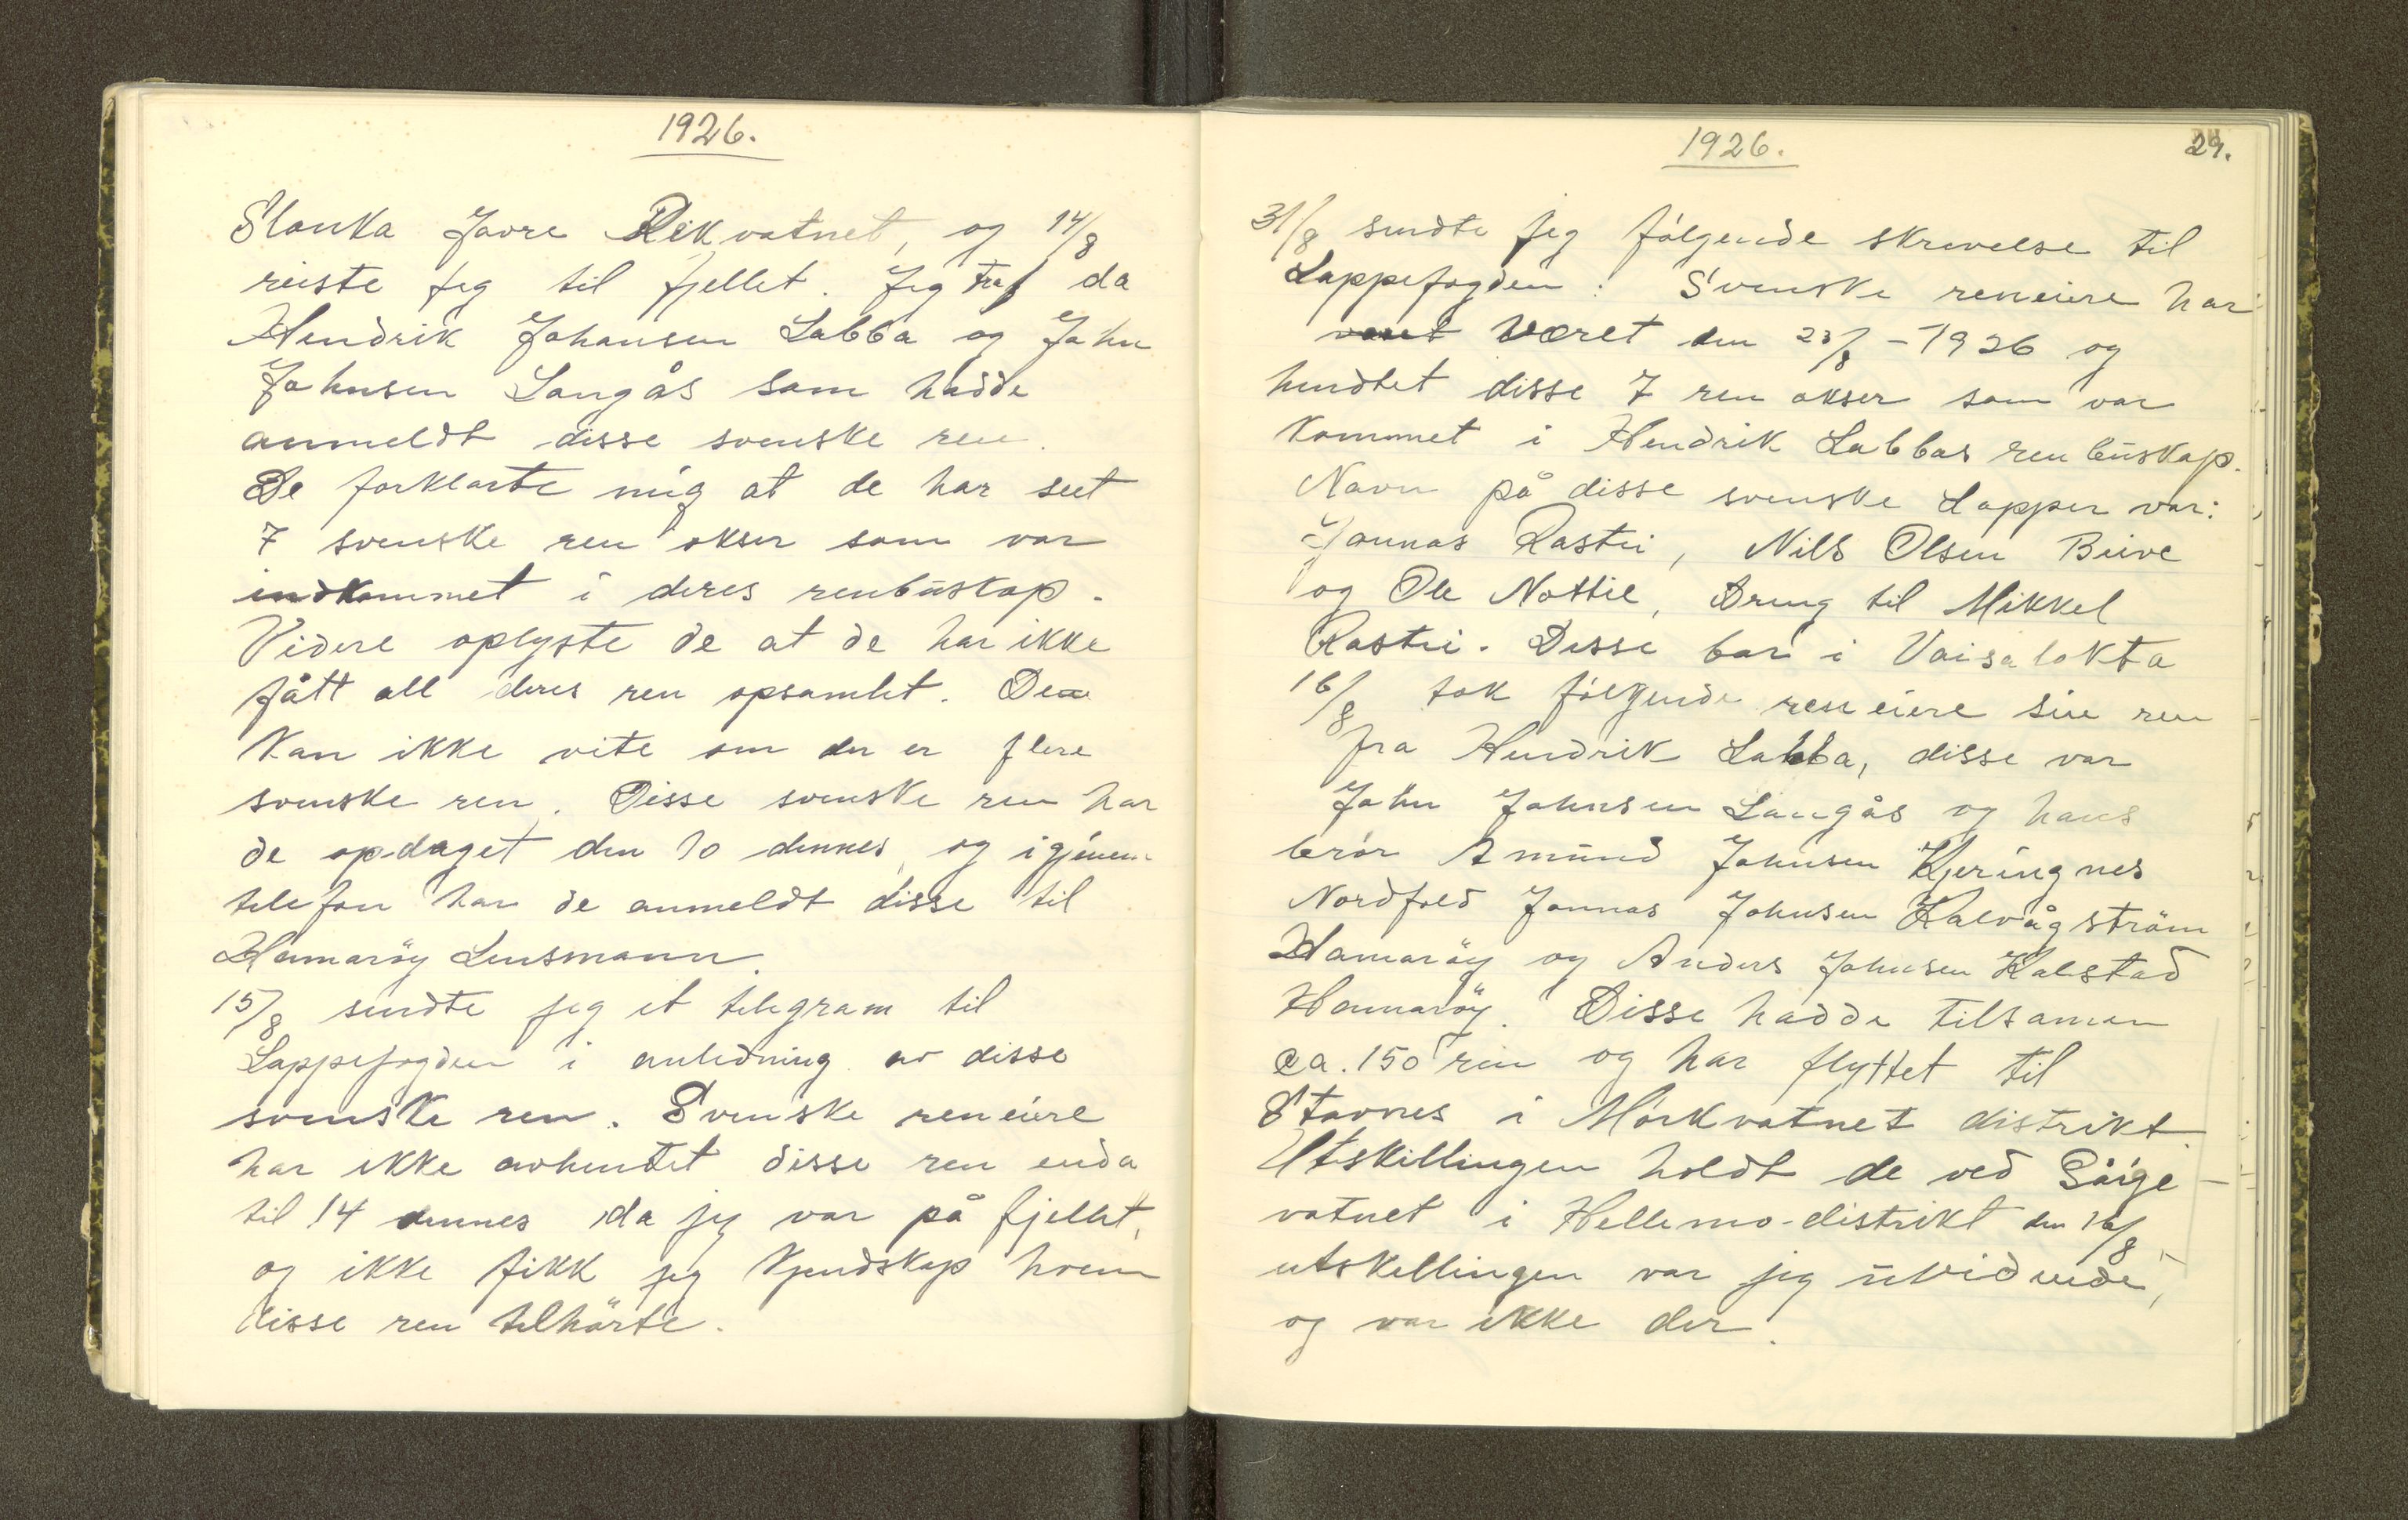 1926.
Slanka Javre Rekvatnet, og 14/8
reiste jeg til fjellet. Jeg traf da
Hendrik Johansen Labba og John
Johnsen Langås som hadde
anmeldt disse svenske ren.
De forklarte mig at de har seet
7 svenske ren okser som var
indkommet i deres renbuskap.
Videre oplyste de at de har ikke
fått all deres ren opsamlet. De
kan ikke vite om der er flere
svenske ren. Disse svenske ren har
de opdaget den 10 dennes, og igjennem
telefon har de anmeldt disse til
Hamarøy Lensmann.
15/8 sendte jeg et telegram til
Lappefogden i anledning av disse
svenske ren. Svenske reneiere
har ikke avhentet disse ren enda
til 14 dennes da jeg var på fjellet,
og ikke fikk jeg kjendskap hvem
disse ren tilhörte.
1926.
29.
31/8 sendte jeg følgende skrivelse til
Lappefogden: Svenske reneiere har
været den 23/8 - 1926 og
hendtet disse 7 ren okser som var
kommet i Hendrik Labbas renbuskap.
Navn på disse svenske Lapper var:
Jonnas Rastii, Nils Olsen Beive
og Ole Nottie, Dreng til Mikkel
Rastii. Disse bor i Vaisalokta
16/8 tok følgende ren eiere sine ren
fra Hendrik Labba, disse var
John Johnsen Langås og hans
brór Amund Johnsen Kjeringnes
Nordfold Jonnas Johnsen Kalvågström
Hamaröy og Anders Johnsen Kalstad
Hammaröy. Disse hadde tilsamen
ca. 150 ren og har flyttet til
Stavnes i Mórkvatnet distrikt.
Utskillingen holdt de ved Såige-
vatnet i Hellemo-distrikt den 16/8,
utskellingen var jeg uvidende,
og var ikke der.